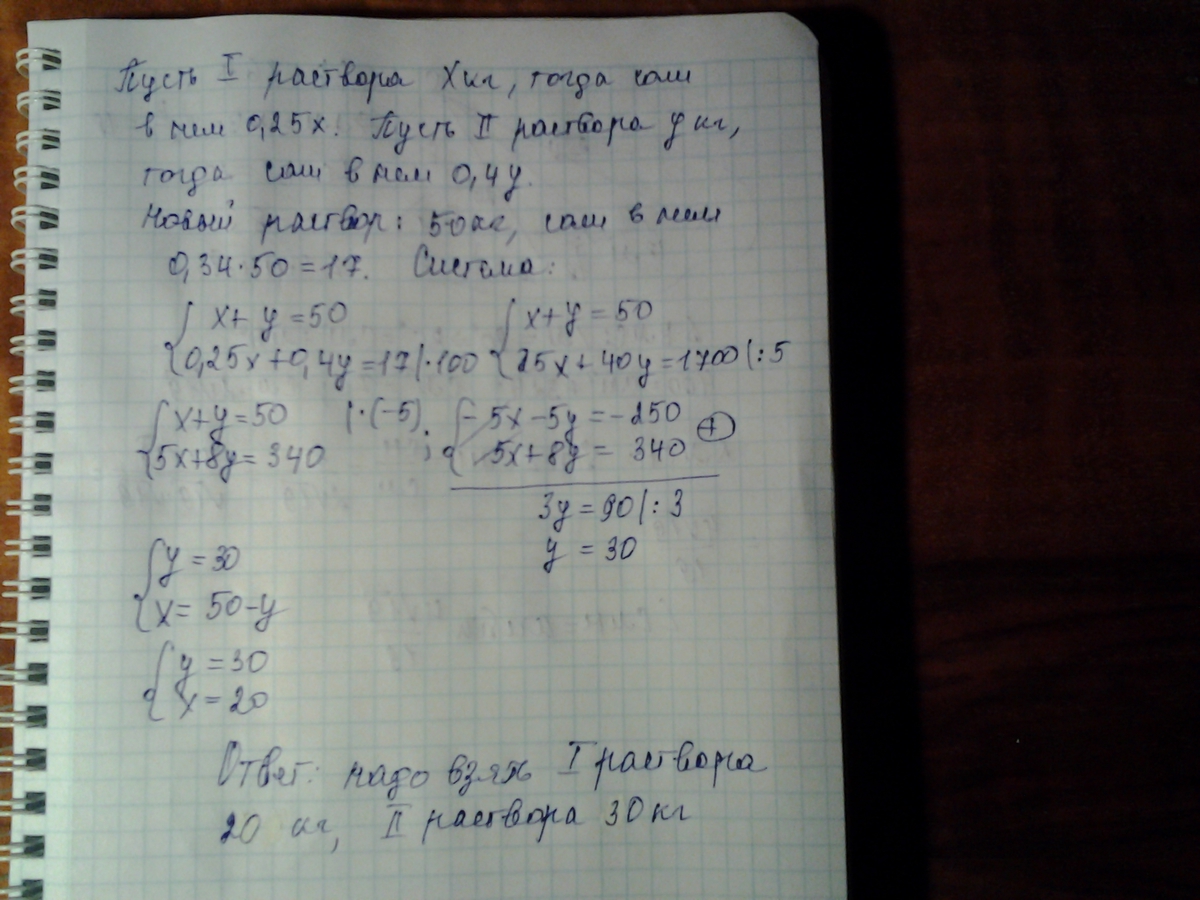 Пусть I раствора x кг, тогда соли
в нем 0,25x. Пусть II раствора y кг,
тогда соли в нем 0,4y.
Новый раствор: 50 кг, соли в нем
0,34·50=17. Система:
{ x+y=50 { x+y=50
{ 0,25x+0,4y=17 |·100 { 25x+40y=1700 |:5
{ x+y=50 |·(-5) ; { -5x-5y=-250
{ 5x+8y=340 { 5x+8y=340 (+)
3y=90 |:3
{ y=30 y=30
{ x=50-y
{ y=30
{ x=20
Ответ: надо взять I раствора
20 кг, II раствора 30 кг